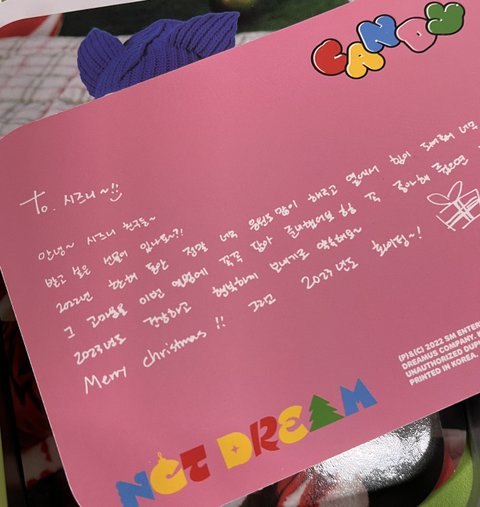 CANDY
To. 시즈니~!!
안녕~ 시즈니 친구들~
받고 싶은 선물이 있나요~?!
2022년 한해 동안 정말 너무 응원도 많이 해주고 옆에서 힘이 되어줘서 너무
그 고마움을 이번 앨범에 꾹꾹 담아 준비했어요 항상 꼭 좋아해 줬으면
2023년도 건강하고 행복하게 보내기로 약속해요~
Merry christmas!! 그리고 2023년도 화이팅~!
(P)&(C) 2022 SM ENTER
DREAMUS COMPANY.
UNAUTHORIZED DUP
PRINTED IN KOREA.
NCT DREAM